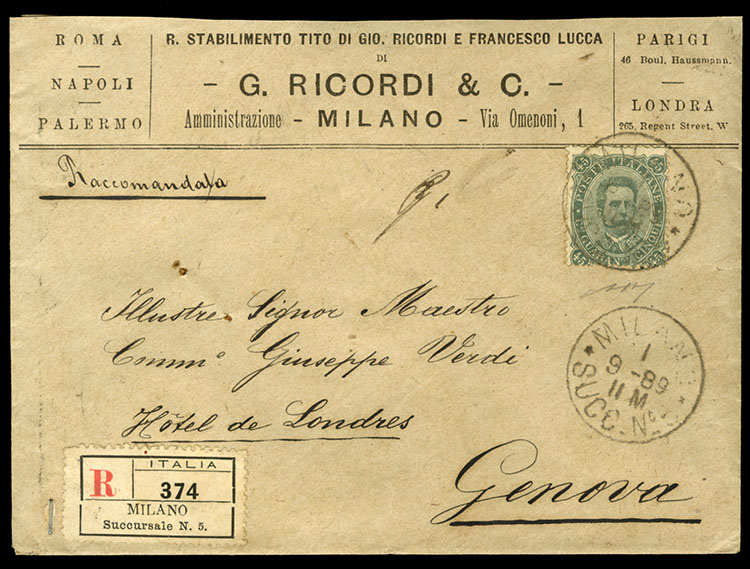 ROMA
NAPOLI
PALERMO
R. STABILIMENTO TITO DI GIO. RICORDI E FRANCESCO LUCCA
DI
- G. RICORDI & C. -
Amministrazione - MILANO - Via Omenoni, 1
PARIGI
46 Boul. Haussmann.
LONDRA
265, Regent Street, W
Raccomandata
45 45
POSTE ITALIANE
CINQUE
45 45
MILANO
Illustre Signor Maestro
Comm° Giuseppe Verdi
Hôtel de Londres
Genova
* MILANO *
1
9 - 89
11 M
SUCC. N°
ITALIA
R 374
MILANO
Succursale N. 5.